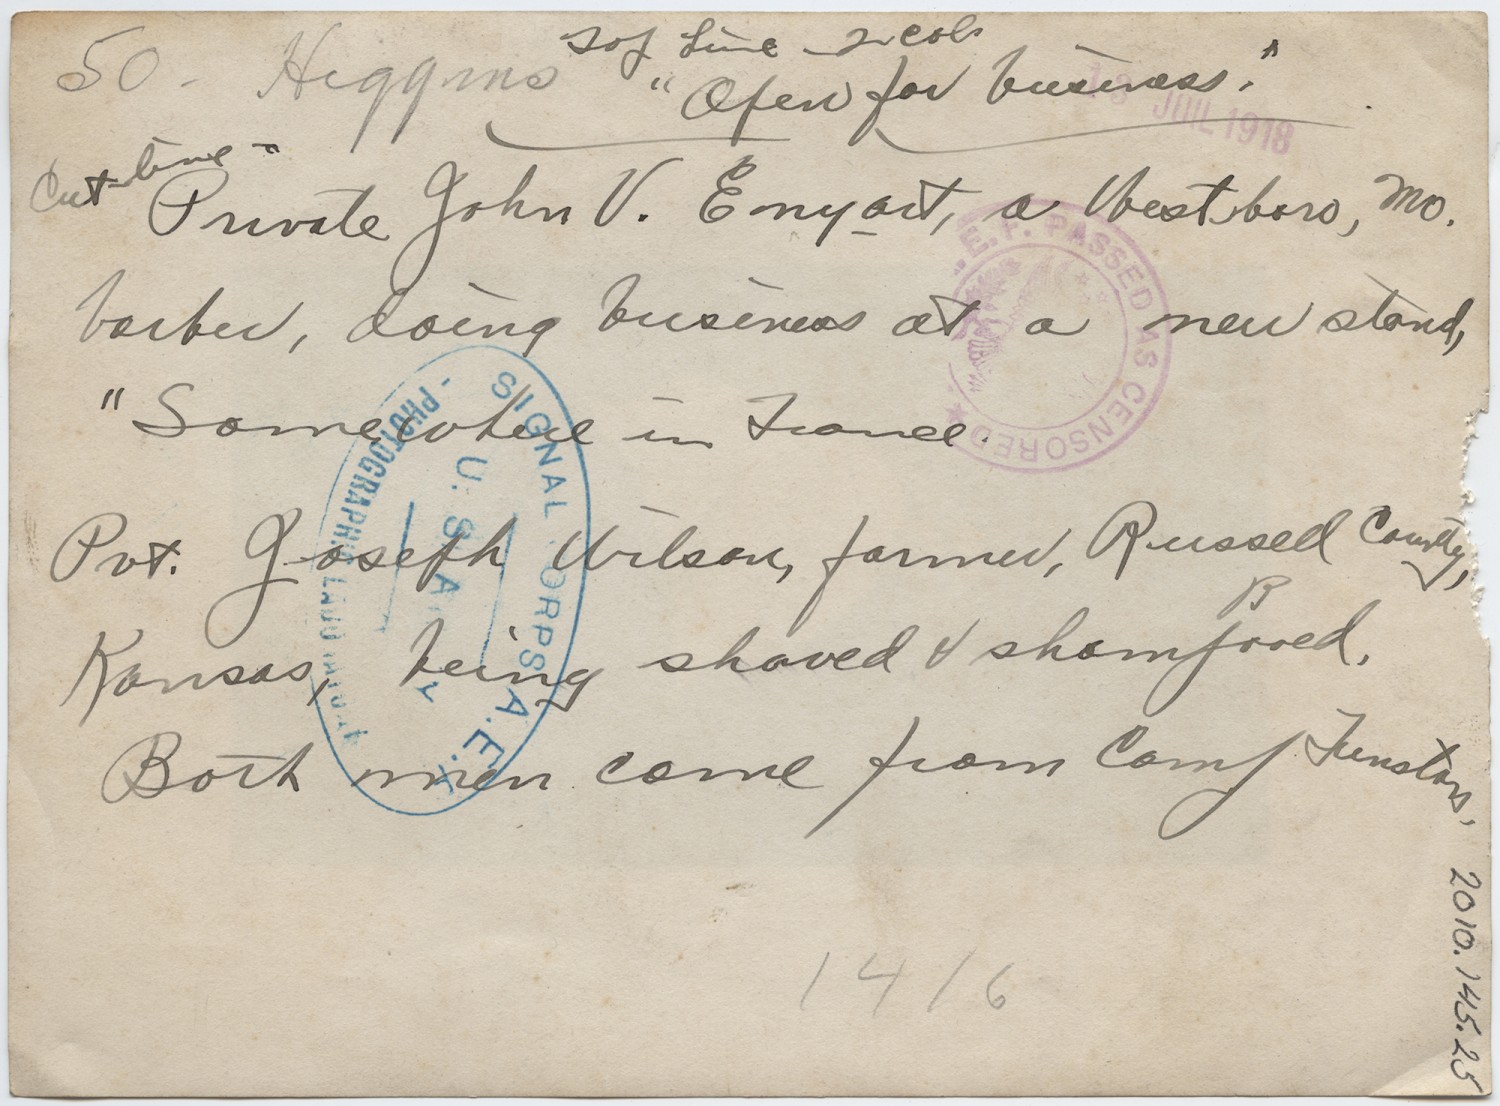 Top Line 2 cols
50 - Higgins "Open for business."
13 JUIL 1918
Cut-line - Private John V. Enyart, a Westboro, Mo.
barber, doing business at a new stand,
"Somewhere in France.
Pvt. Joseph Wilson, farmer, Russell County,
Kansas, being shaved & shampooed.
P
Both men came from Camp Funston.
A.E.F. PASSED AS CENSORED
SIGNAL CORPS A.E.F.
U.S. ARMY
PHOTOGRAPHIC LABORATORY
1416
2010.145.25